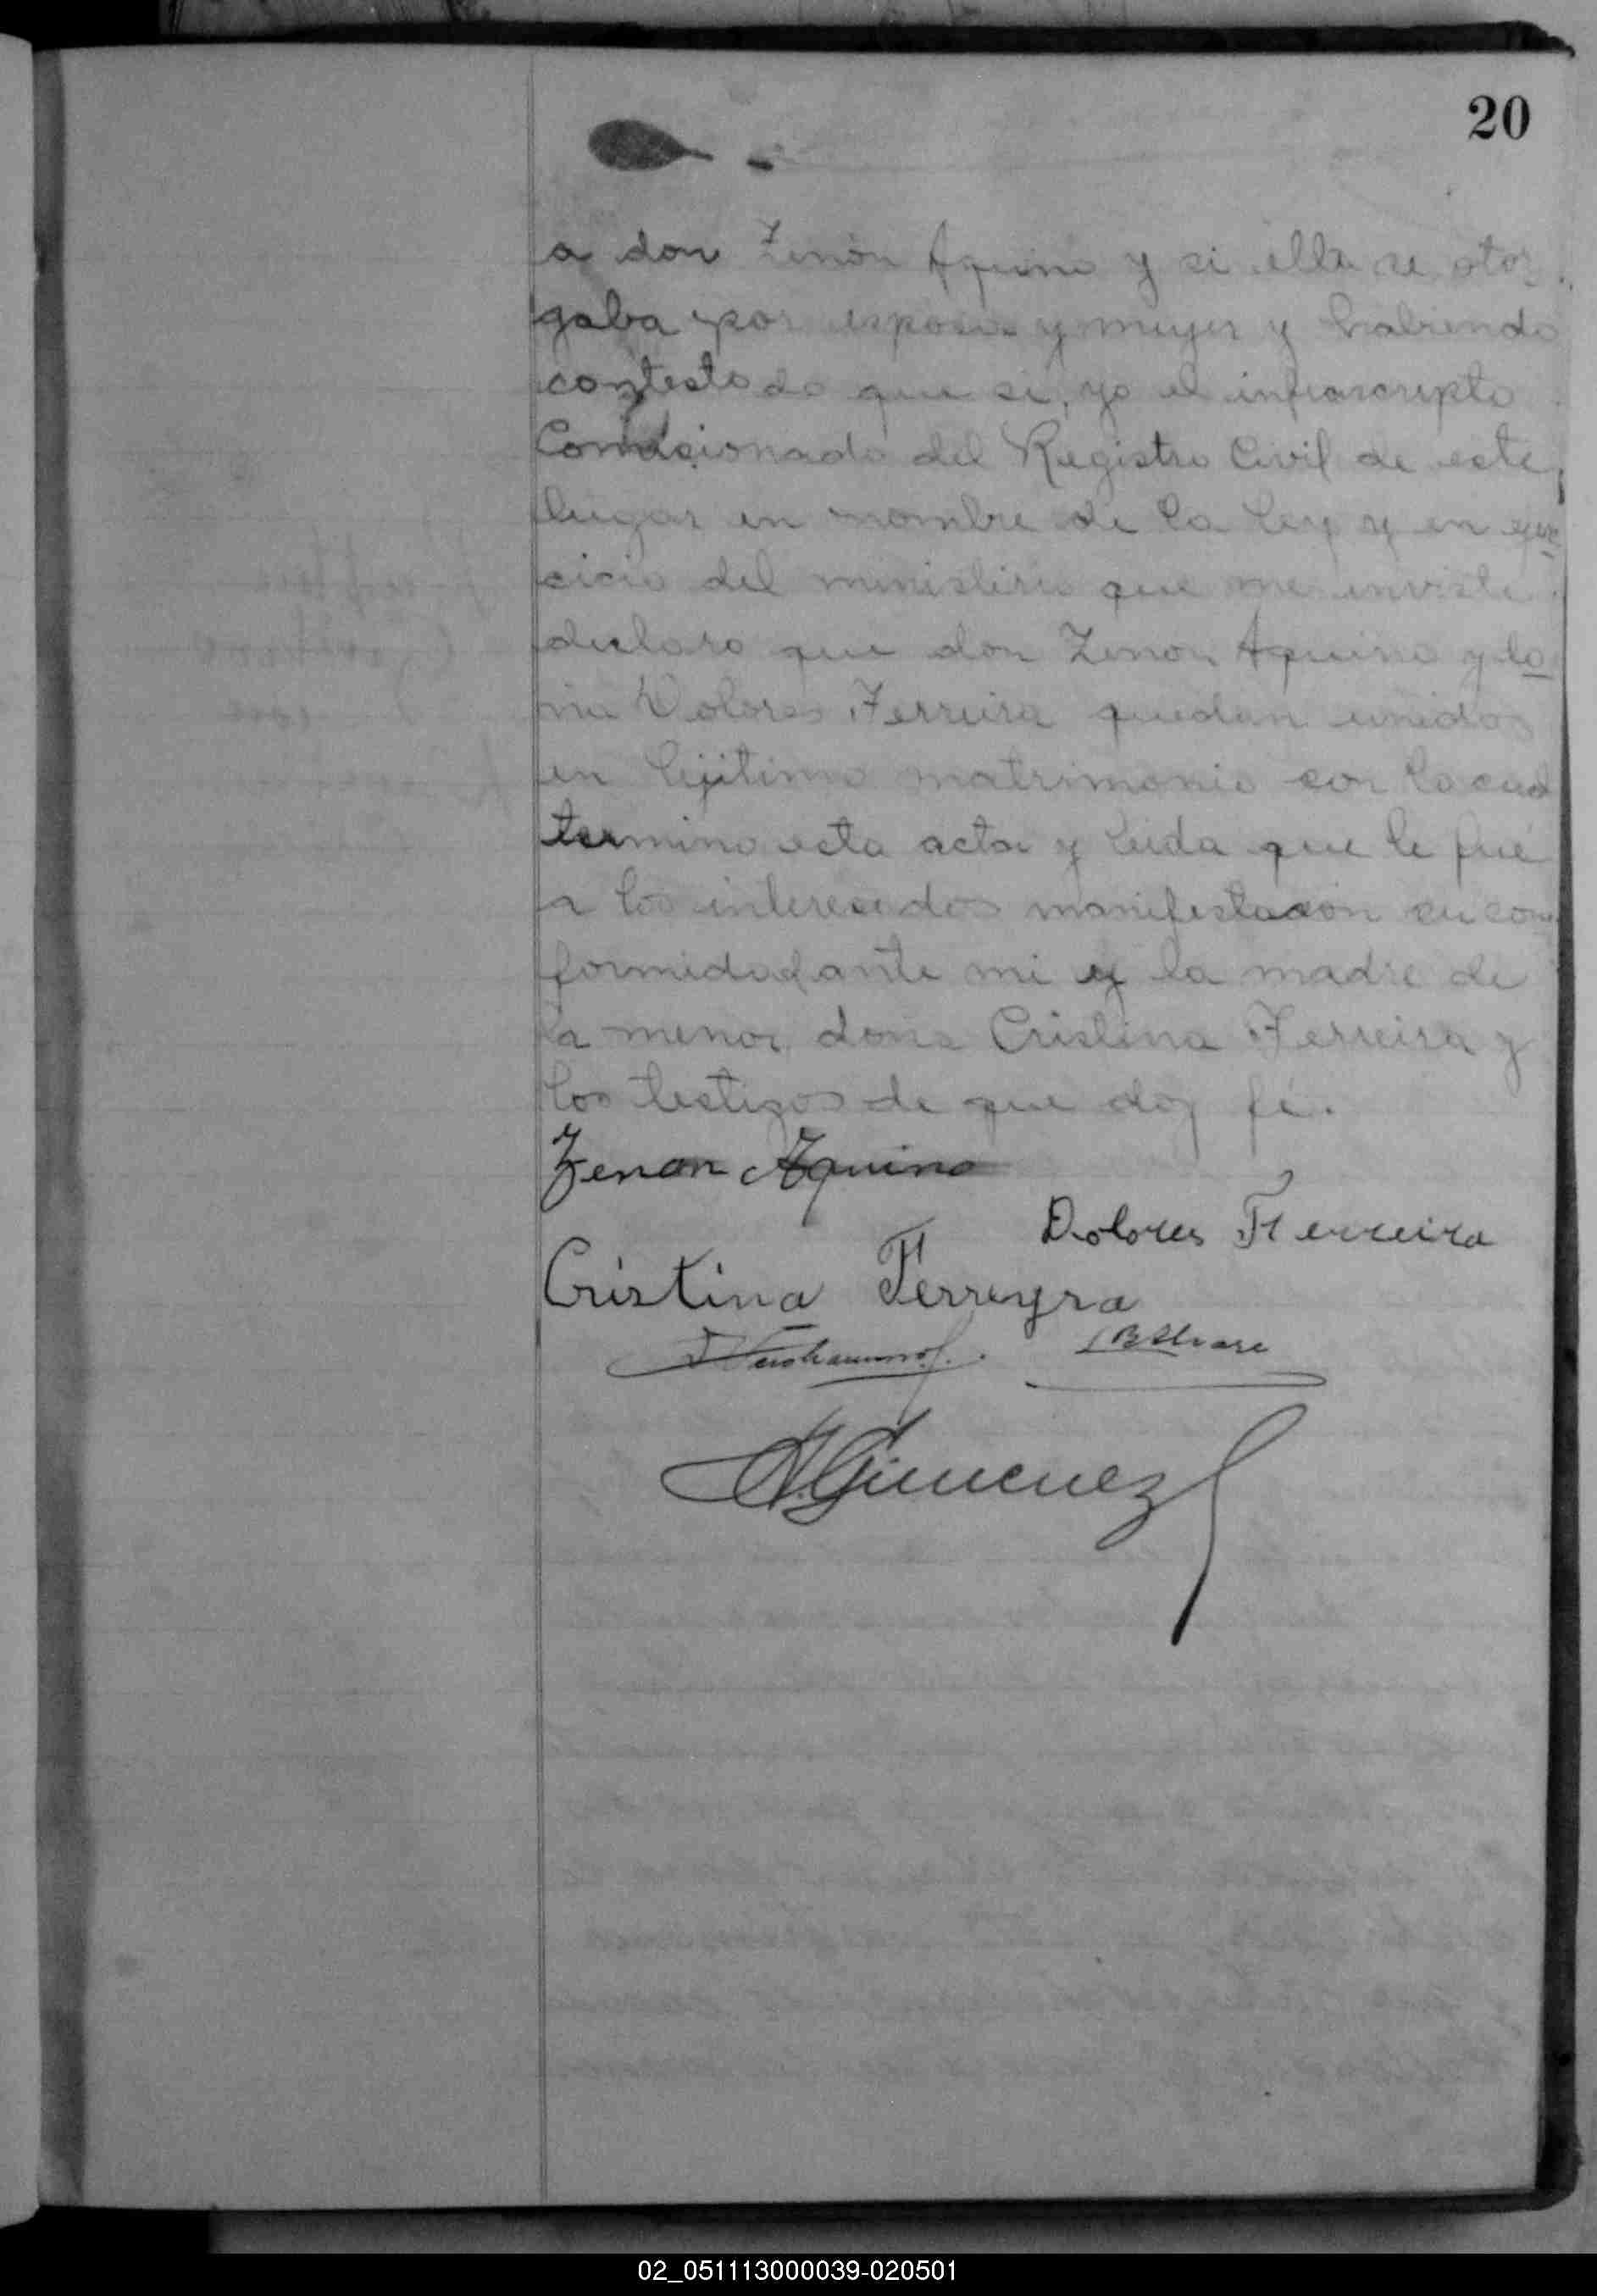 20
a don Zenón Aquino y si ella se otor
gaba por esposa y mujer y habiendo
contestado que si, yo el infrascripto
Comisionado del Registro Civil de este
lugar en nombre de la ley y en ejer
cicio del ministerio que me inviste
declaro que don Zenon Aquino y do
ña Dolores Ferreira quedan unidos
en lejitimo matrimonio con lo cual
termino esta acta y leida que le fué
a los interesados manifestaron su con
formidad ante mi y la madre de
la menor dona Cristina Ferreira y
los testigos de que doy fé.
Zenon Aquino
Dolores Ferreira
Cristina Ferreyra
Gimenez
02_051113000039-020501